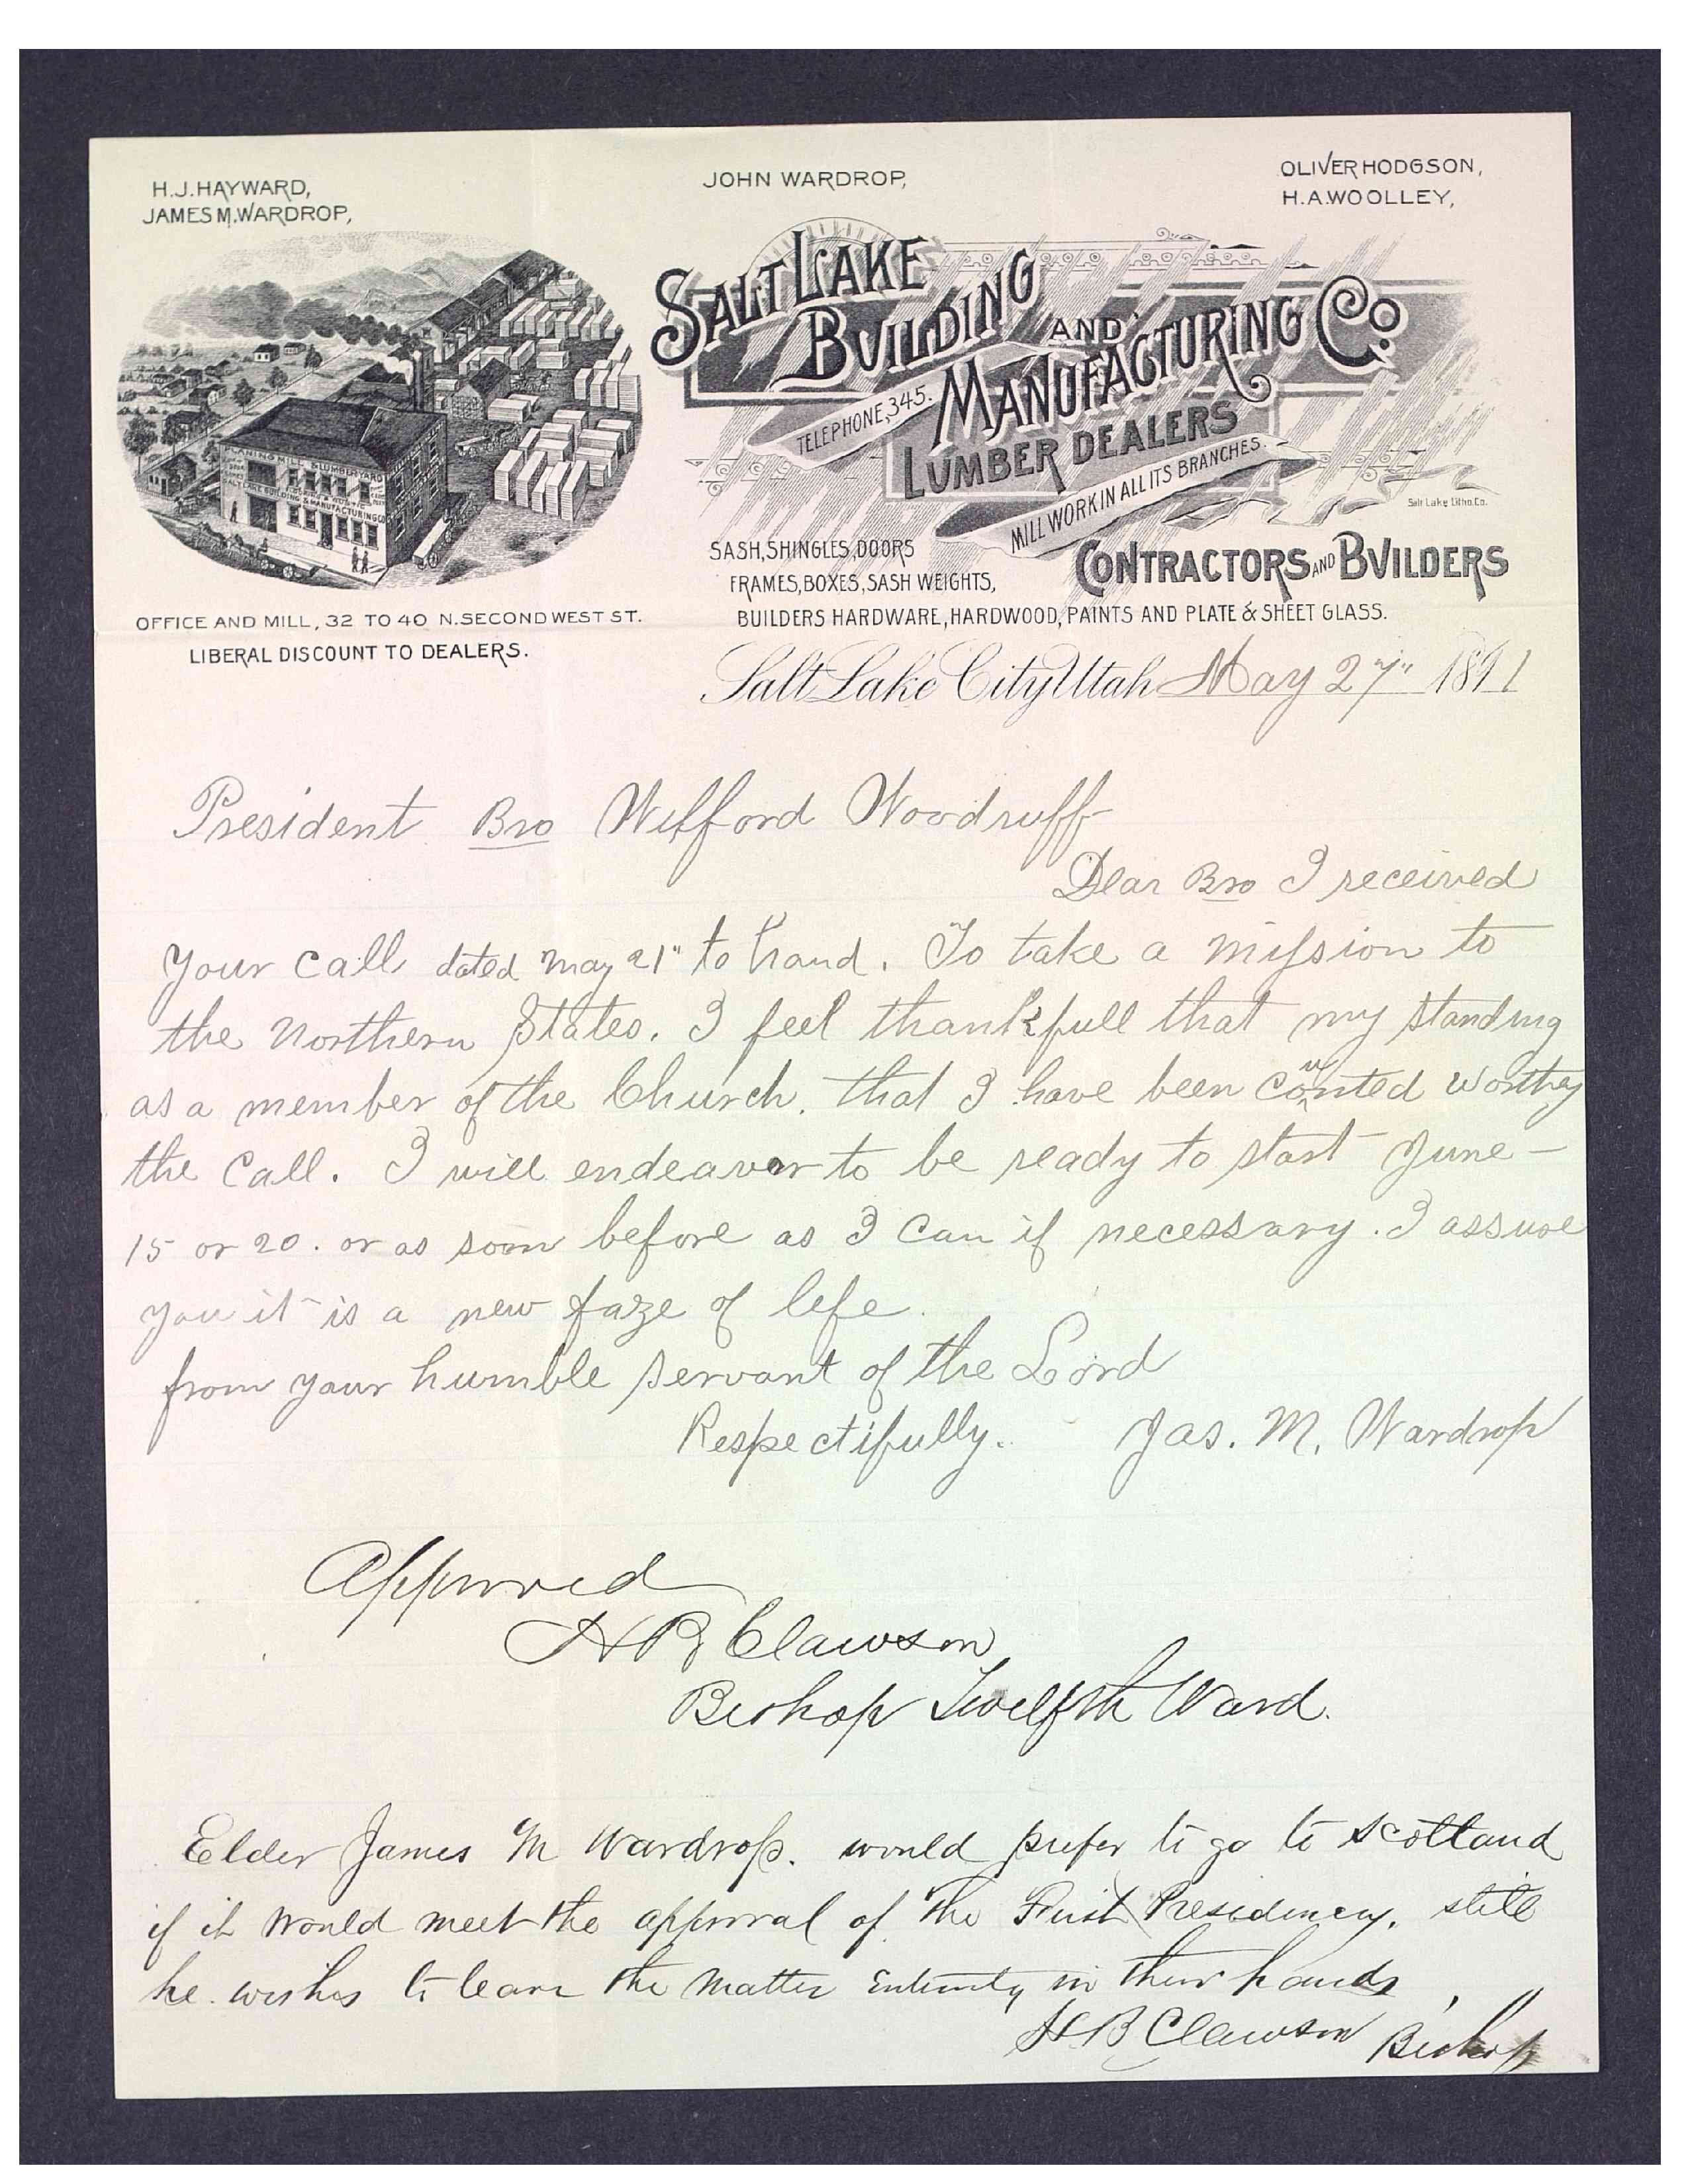 H.J.HAYWARD,
JAMES M.WARDROP,
JOHN WARDROP,
OLIVER HODGSON,
H.A.WOOLLEY,
SALT LAKE
BUILDING
AND
MANUFACTURING CO
TELEPHONE, 345.
LUMBER DEALERS
MILL WORK IN ALL ITS BRANCHES.
Salt Lake Litho.Co.
PLANING MILL & LUMBER YARD
SALT LAKE BUILDING & MANUFACTURING CO
SASH, SHINGLES, DOORS
FRAMES, BOXES, SASH WEIGHTS,
CONTRACTORS AND BUILDERS
BUILDERS HARDWARE, HARDWOOD, PAINTS AND PLATE & SHEET GLASS.
OFFICE AND MILL, 32 TO 40 N. SECOND WEST ST.
LIBERAL DISCOUNT TO DEALERS.
Salt Lake City Utah May 27" 1891
President Bro Wilford Woodruff
Dear Bro I received
Your Call dated may 21" to hand. To take a mission to
the Northern States. I feel thankfull that my standing
as a member of the Church. that I have been counted worthy
the Call. I will endeavor to be ready to start June –
15 or 20. or as soon before as I Can if necessary. I assure
you it is a new faze of life.
from your humble servant of the Lord
Respectifully. Jas. M. Wardrop
Approved
H B Clawson
Bishop Twelfth Ward.
Elder James M Wardrop. would prefer to go to Scotland
if it would meet the approval of the First Presidency, still
he wishes to leave the matter entirely in their hands,
H B Clawson Bishop